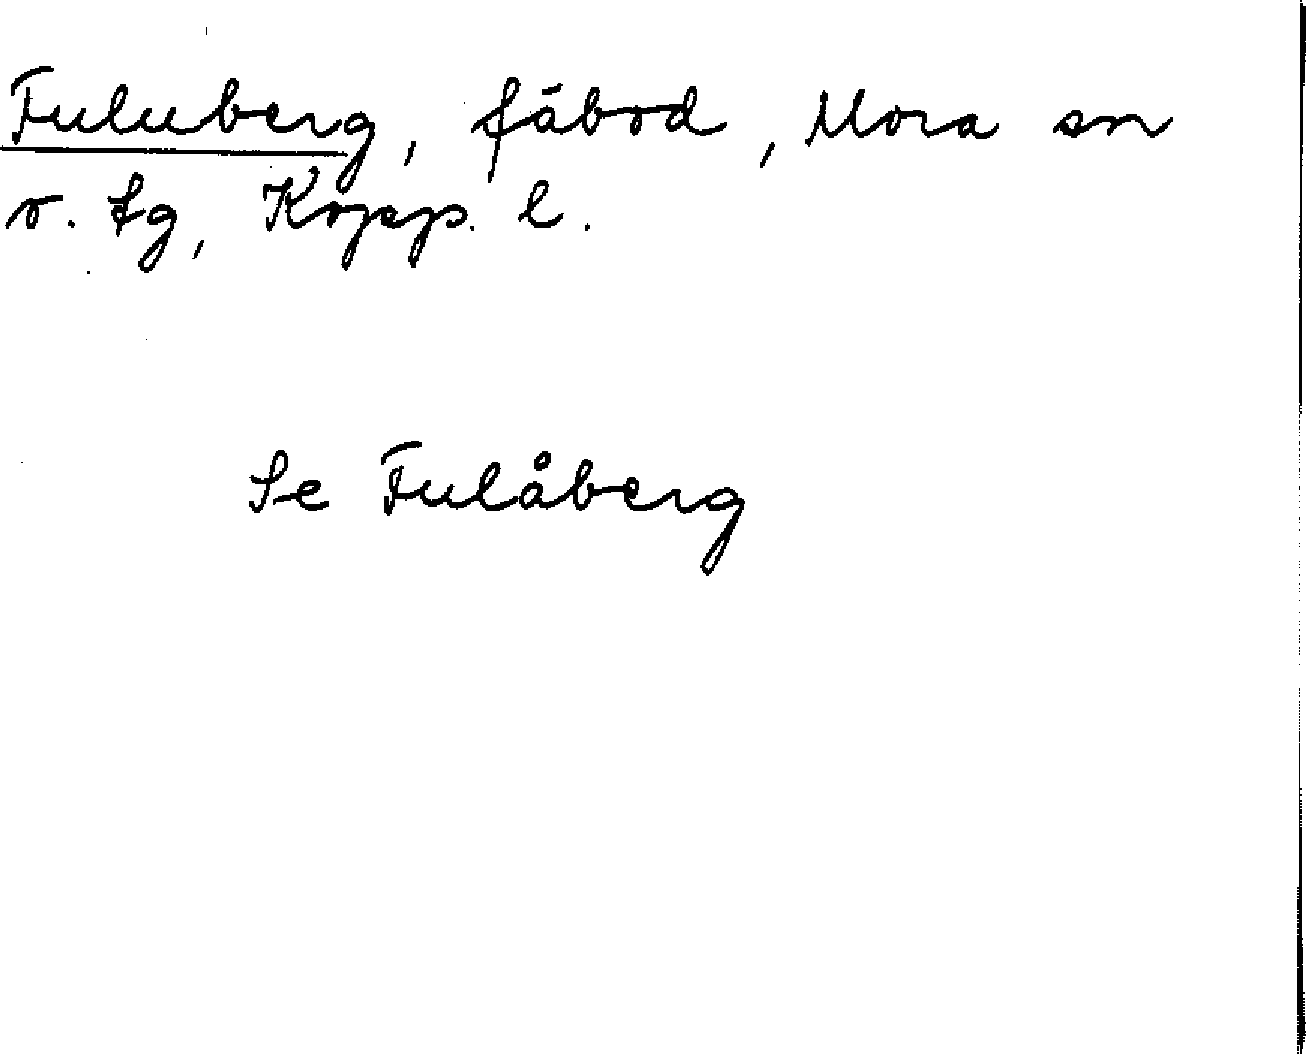 Fuluberg, fäbod, Mora sn
o. tg, Kopp. l.
Se Fulåberg